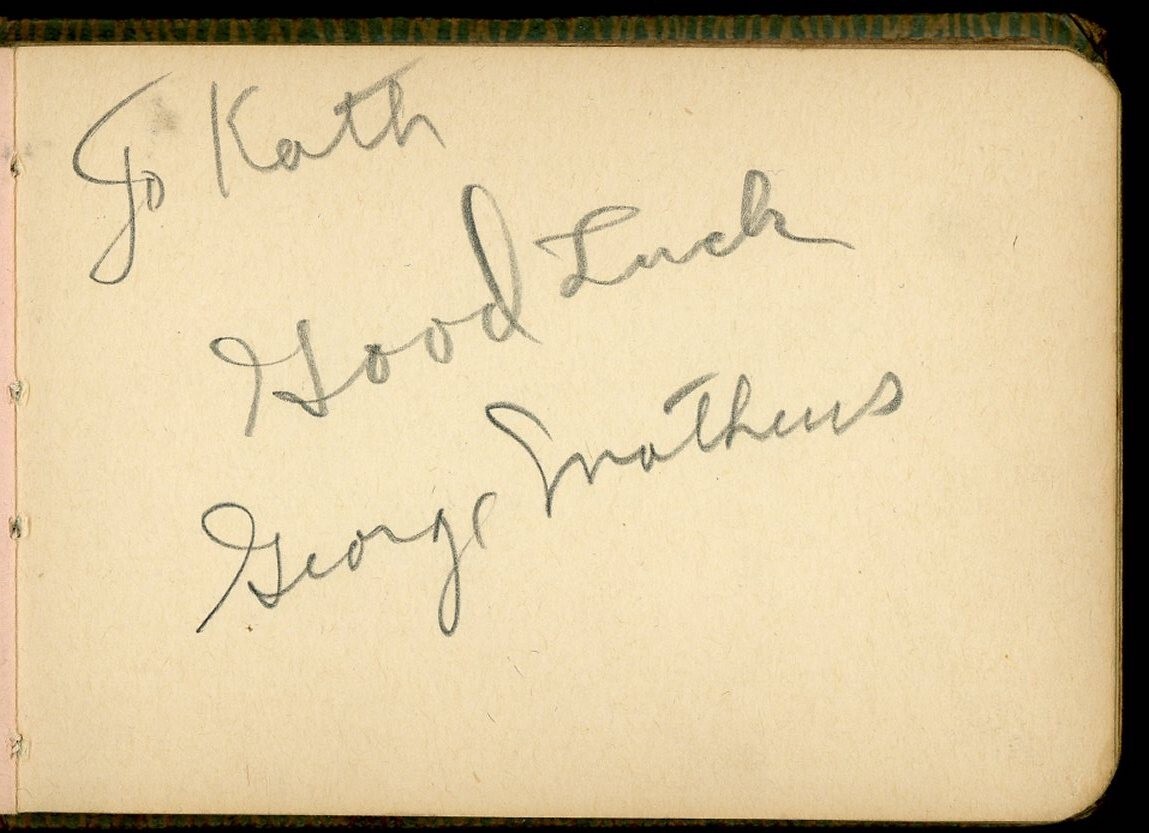 To Kath
Good Luck
George Mathews